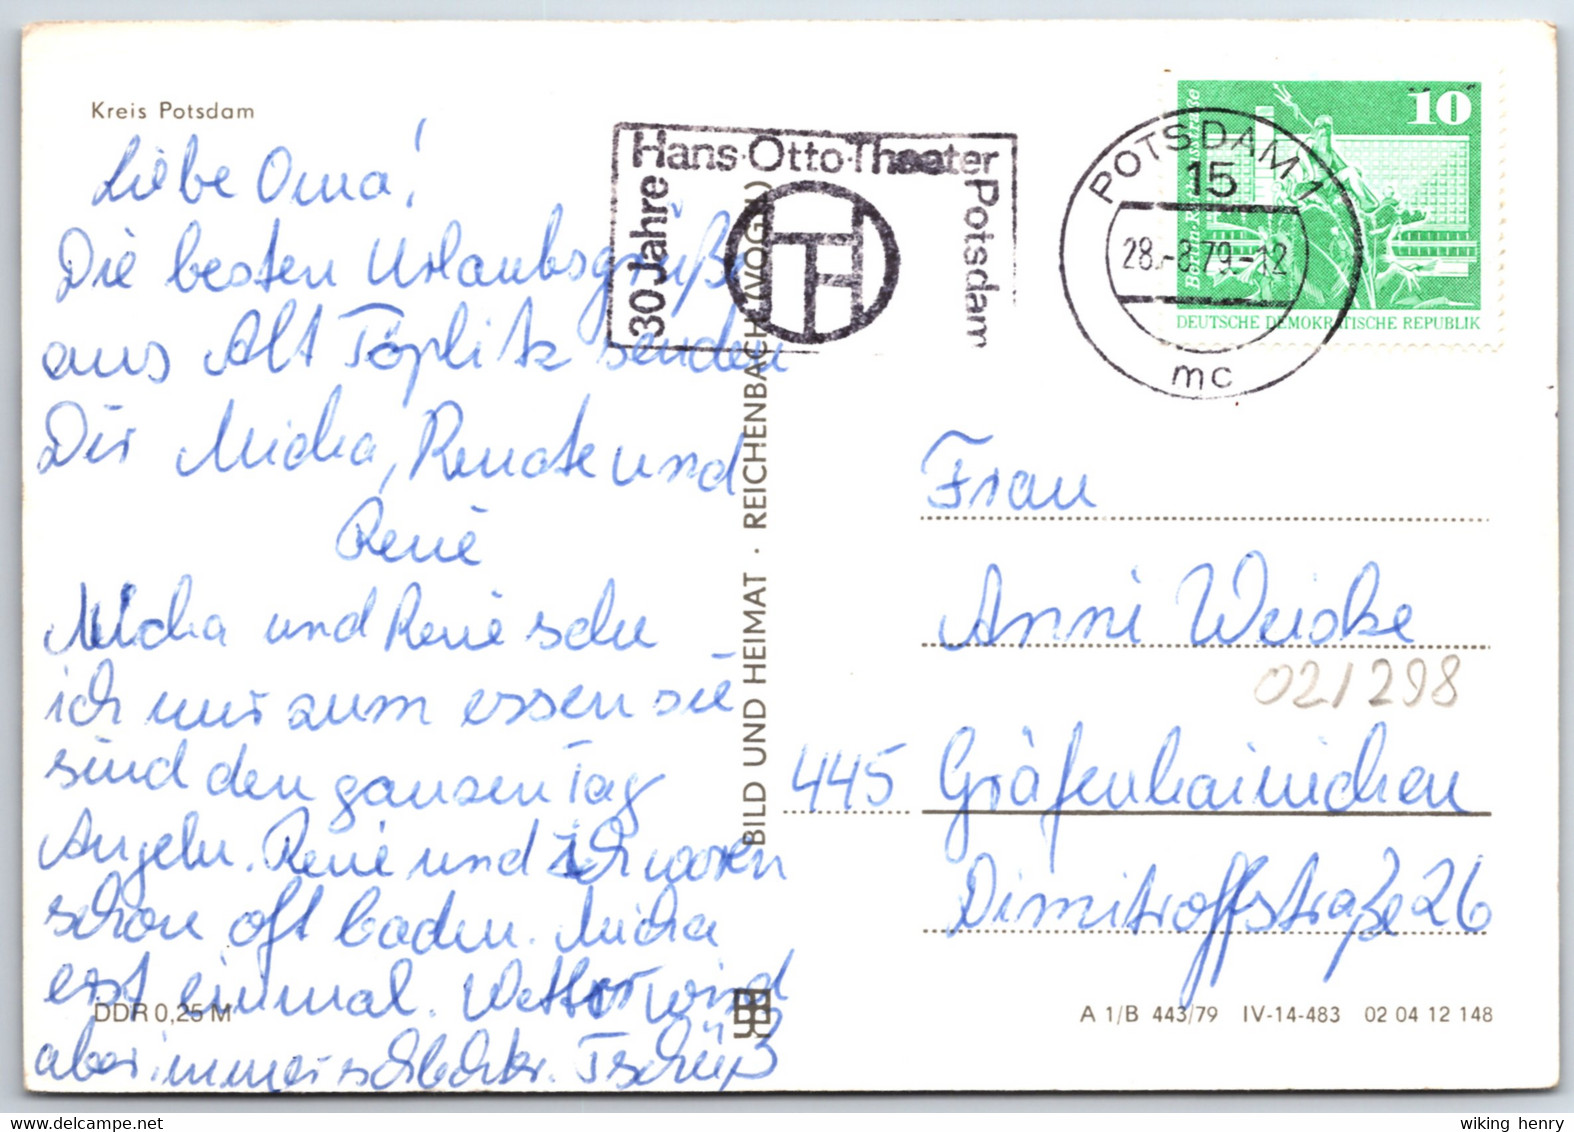 Kreis Potsdam
Liebe Oma!
Die besten Urlaubsgrüße
aus Alt Töplitz senden
Dir Micha, Renate und
René
Micha und René sehe
ich nur zum essen sie
sind den ganzen Tag
Angeln. René und Ich waren
schon oft baden. Micha
erst einmal. Wetter wird
aber immer schlechter. Tschüß
DDR 0,25 M
BILD UND HEIMAT · REICHENBACH (VOGTL)
30 Jahre
Hans-Otto-Theater
Potsdam
HOT
POTSDAM 1
15
28.-8.79-12
mc
10
DEUTSCHE DEMOKRATISCHE REPUBLIK
Frau
Anni Weiske
02/298
445 Gräfenhainichen
Dimitroffstraße 26
A 1/B 443/79 IV-14-483 02 04 12 148
wiking henry